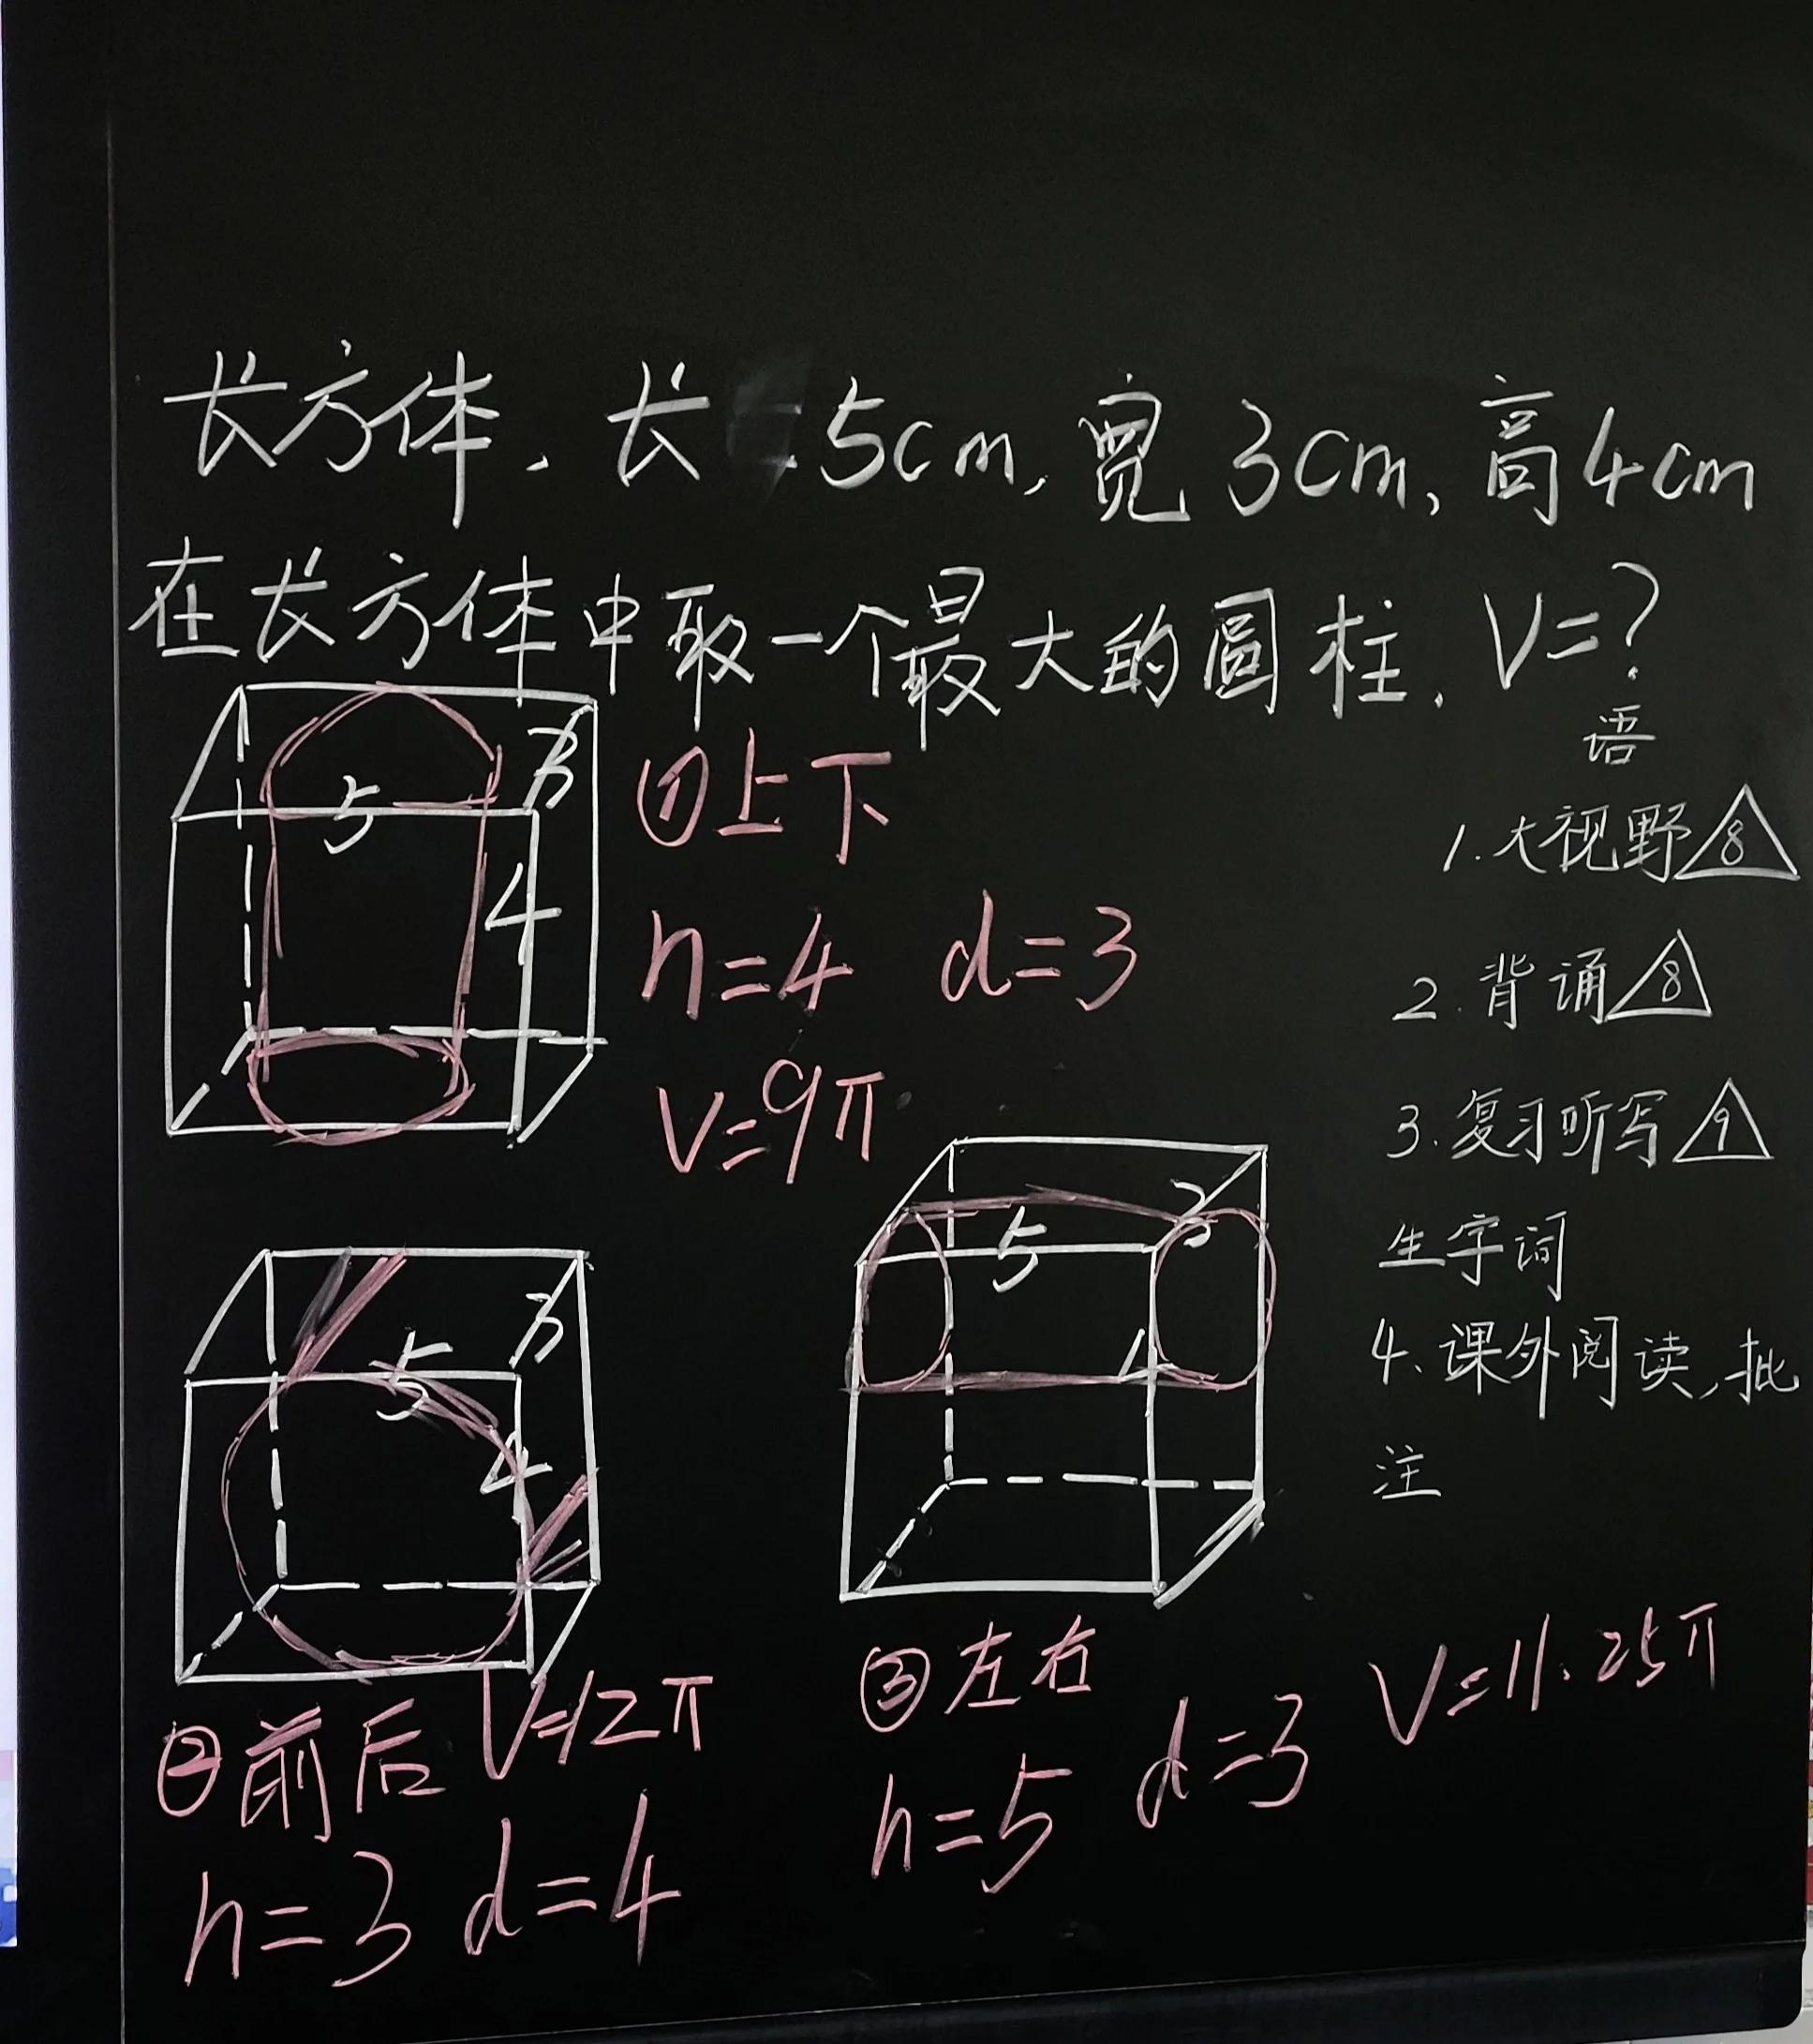 长方体. 长 5cm, 宽3cm, 高4cm
在长方体中取一个最大的圆柱. V=?
5
3
4
①上下
h=4 d=3
V=9π
5
3
5
4
②前后 V=12π
h=3 d=4
5
3
4
③左右
h=5 d=3 V=11.25π
语
1.大视野8
2.背诵8
3.复习听写9
生字词
4.课外阅读,批
注